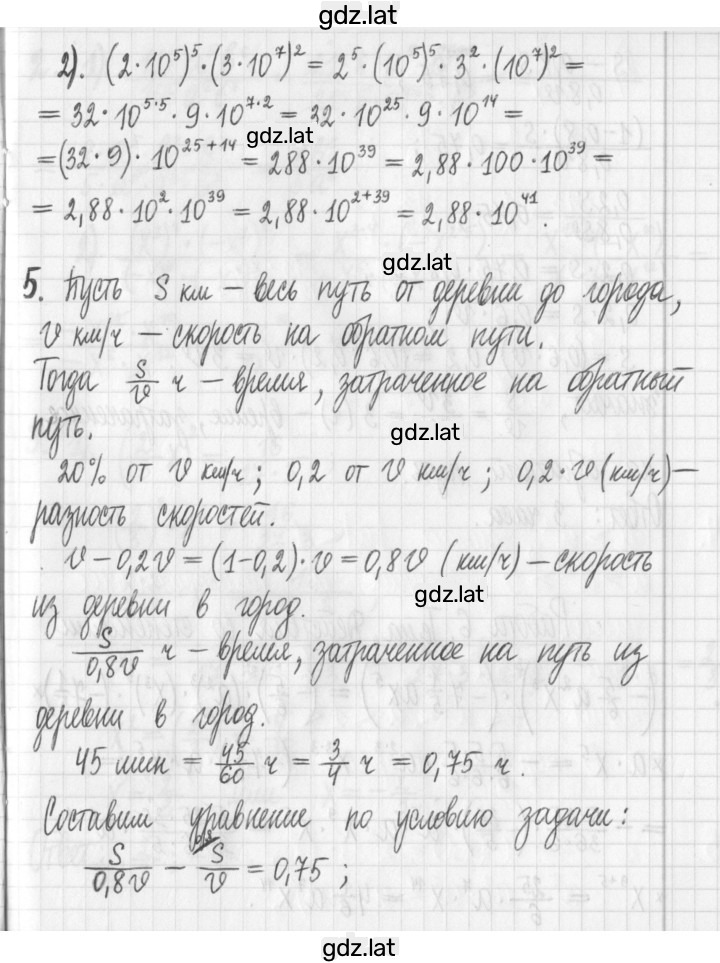 gdz.lat
2). (2·10⁵)⁵·(3·10⁷)² = 2⁵·(10⁵)⁵·3²·(10⁷)² =
= 32·10⁵·⁵·9·10⁷·² = 32·10²⁵·9·10¹⁴ =
gdz.lat
=(32·9)·10²⁵⁺¹⁴ = 288·10³⁹ = 2,88·100·10³⁹ =
= 2,88·10²·10³⁹ = 2,88·10²⁺³⁹ = 2,88·10⁴¹.
gdz.lat
5. Пусть S км – весь путь от деревни до города,
v км/ч – скорость на обратном пути.
Тогда S/v ч – время, затраченное на обратный
путь.
gdz.lat
20% от v км/ч; 0,2 от v км/ч; 0,2·v (км/ч) –
разность скоростей.
v – 0,2v = (1–0,2)·v = 0,8v (км/ч) – скорость
gdz.lat
из деревни в город.
S/0,8v ч – время, затраченное на путь из
деревни в город.
45 мин = 45/60 ч = 3/4 ч = 0,75 ч.
Составим уравнение по условию задачи:
S/0,8v – S/v = 0,75;
gdz.lat